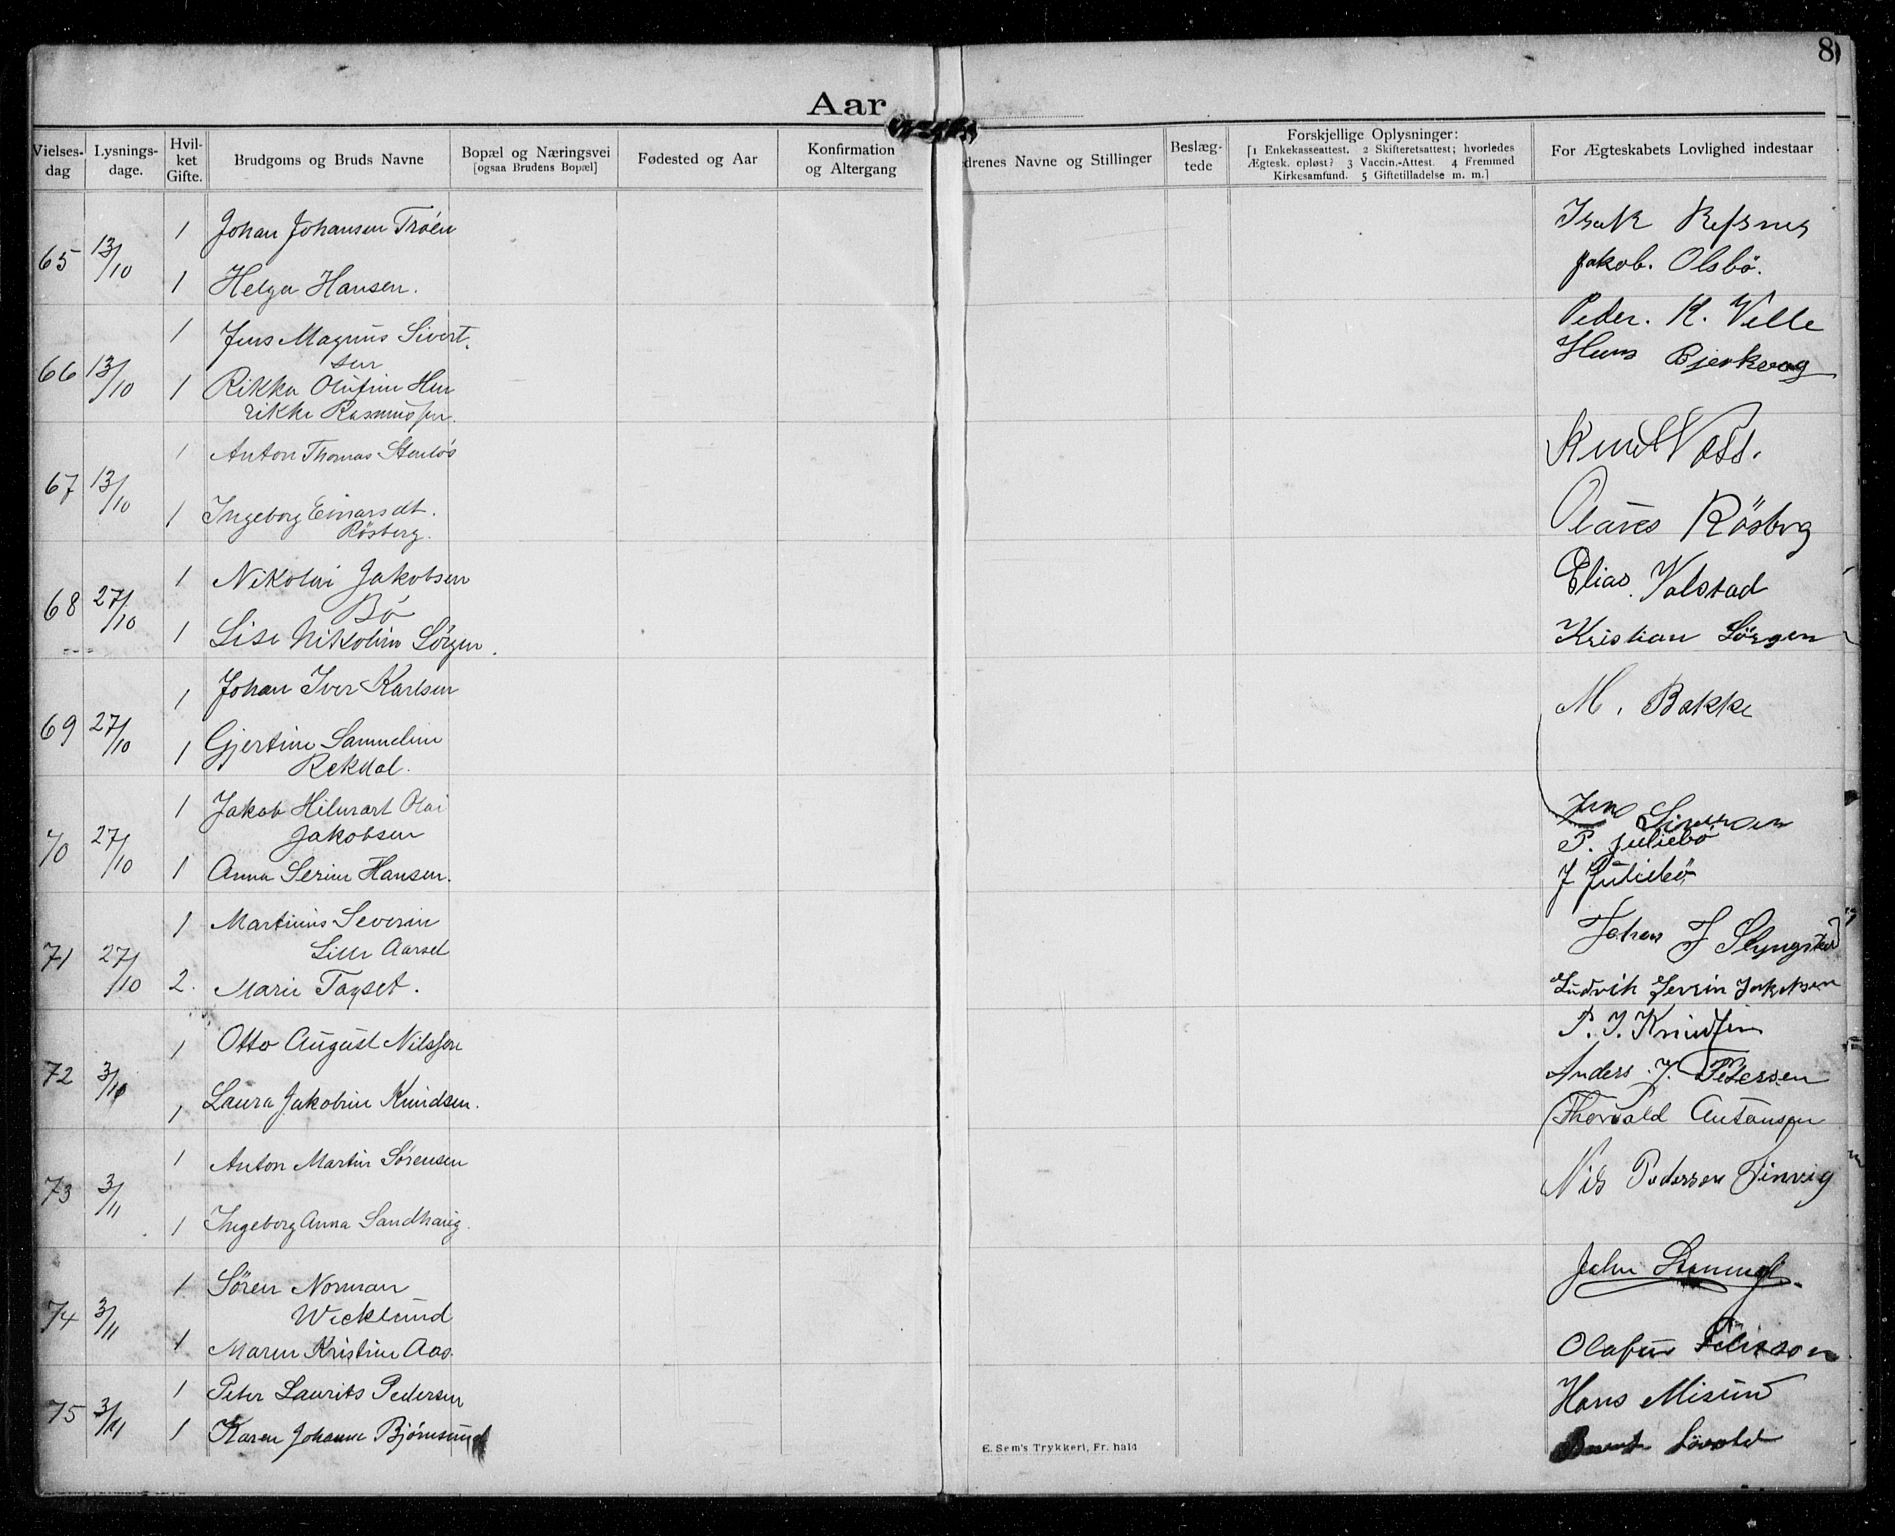 8
Aar
Vielses-dag
Lysnings-dage.
Hvil-ket Gifte.
Brudgoms og Bruds Navne
Bopæl og Næringsvei
[ogsaa Brudens Bopæl]
Fødested og Aar
Konfirmation og Altergang
drenes Navne og Stillinger
Beslæg-tede
Forskjellige Oplysninger:
[1 Enkekasseattest. 2 Skifteretsattest; hvorledes
Ægtesk. opløst? 3 Vaccin.-Attest. 4 Fremmed
Kirkesamfund. 5 Giftetilladelse m. m.]
For Ægteskabets Lovlighed indestaar
1 Johan Johansen Trøen
Isak Refsnes
65 13/10
Jakob. Olsbö.
1 Helga Hansen.
Peder. K. Velle
1 Jens Magnus Sivert-
sen
Hans Bjerkevag
66 13/10 1 Rikka Olufine Hen
rikke Rasmussen.
1 Anton Thomas Stenløs
Knut Voss.
67 13/10
1 Ingeborg Einarsdt.
Røsberg.
Olaves Rösberg
1 Nikolai Jakobsen
Bö
Elias. Valstad
68 27/10
1 Lise Nikoline Sørgen.
Kristian Sörgen
1 Johan Iver Karlsen
M. Bakke
69 27/10
1 Gjertine Samueline
Rekdal.
1 Jakob Hilmart Olai
Jakobsen
Jens Simensen
P. Juliebö
70 27/10
1 Anna Serine Hansen.
J Juliebö
1 Martinus Severin
Lille Aarset
Johan J Slyngstad
71 27/10 2. Marie Tagset.
Ludvik Severin Jakobsen
P. J. Knudsen
1 Otto August Nilssen
72 3/10
Anders J. Petersen
1 Laura Jakobine Knudsen.
Thorvald Antonsen
1 Anton Martin Sørensen
73 3/11
Nils Pedersen Finvig
1 Ingeborg Anna Sandhaug.
1 Sören Norman
Wicklund
John
74 3/11
1 Maren Kristine Aas.
1 Peter Laurits Pedersen
Hans Misund
75 3/11
1 Karen Johanne Bjørnsund
Løvold
E. Sem's Trykkeri, Fr.hald